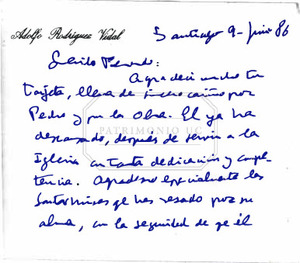 Adolfo Rodríguez Vidal
Santiago 9-Junio 86
Querido Fernando:
Agradecí mucho tu
tarjeta, llena de fino cariño por
Pedro y por la Obra. El ya ha
descansado, después de servir a la
PATRIMONIO UC
Iglesia con tanta dedicación y compe-
tencia. Agradezco especialmente las
Santas Misas que has rezado por su
alma, con la seguridad de qe él